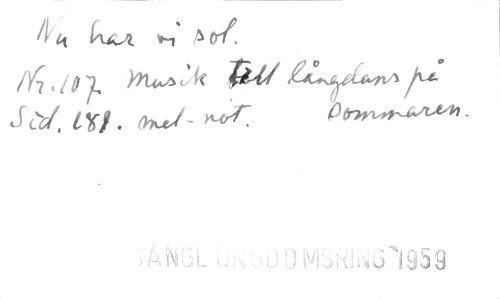 Nu har vi sol.
Nr. 107. Musik till långdans på
Sid. 181. mel-not. Sommaren.
SÅNGL UNGDOMSRING 1959